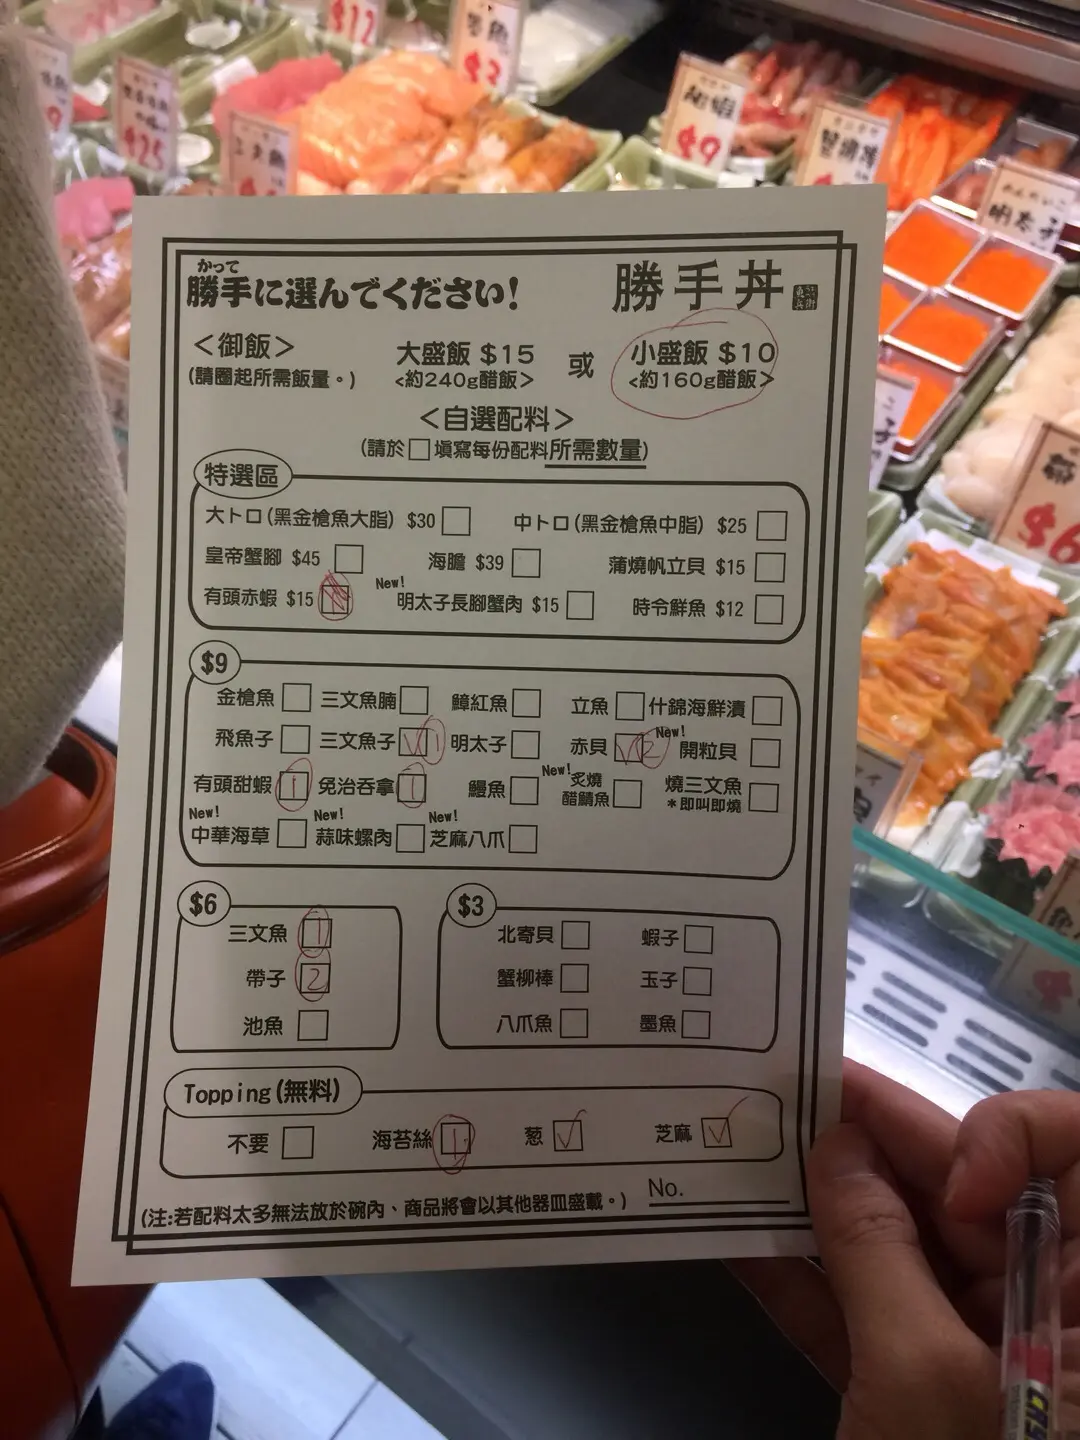 $12
$3
$25
AEBI蝦
$9
三文魚
明太子
$6
かって
勝手に選んでください!
勝手丼
<御飯>
(請圈起所需飯量。)
大盛飯 $15
<約240g醋飯>
或
小盛飯 $10
<約160g醋飯>
<自選配料>
(請於□填寫每份配料所需數量)
特選區
大トロ(黑金槍魚大脂) $30
中トロ(黑金槍魚中脂) $25
皇帝蟹腳 $45
海膽 $39
蒲燒帆立貝 $15
有頭赤蝦 $15
New!
明太子長腳蟹肉 $15
時令鮮魚 $12
$9
金槍魚
三文魚腩
鱆紅魚
立魚
什錦海鮮漬
飛魚子
三文魚子 V 1
明太子
赤貝 V 2
New!
開粒貝
有頭甜蝦 1
免治吞拿 1
鰻魚
New!
炙燒
醋鯖魚
燒三文魚
*即叫即燒
New!
中華海草
New!
蒜味螺肉
New!
芝麻八爪
$6
三文魚 1
帶子 2
池魚
$3
北寄貝
蝦子
蟹柳棒
玉子
八爪魚
墨魚
Topping(無料)
不要
海苔絲 1
葱 ✓
芝麻 ✓
(注:若配料太多無法放於碗內、商品將會以其他器皿盛載。)
No.